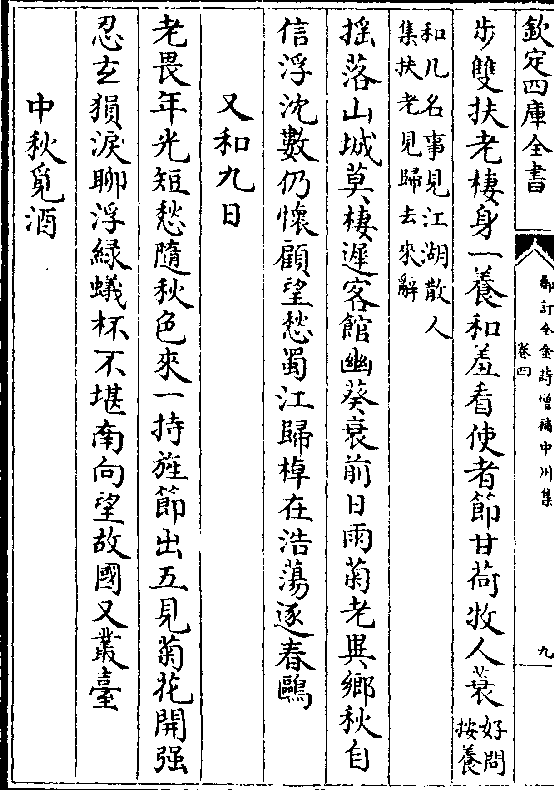 欽定四庫全書
御訂全金詩增補中州集
卷四
九
步雙扶老棲身一養和羞看使者節甘荷牧人蓑好問
按養
和几名事見江湖散人
集扶老見歸去來辭
揺落山城莫棲遲客館幽葵衰前日雨菊老異鄉秋自
信浮沈數仍懷顧望愁蜀江歸棹在浩蕩逐春鷗
又和九日
老畏年光短愁隨秋色來一持旌節出五見菊花開强
忍玄猿淚聊浮緑蟻杯不堪南向望故國又叢臺
中秋覓酒